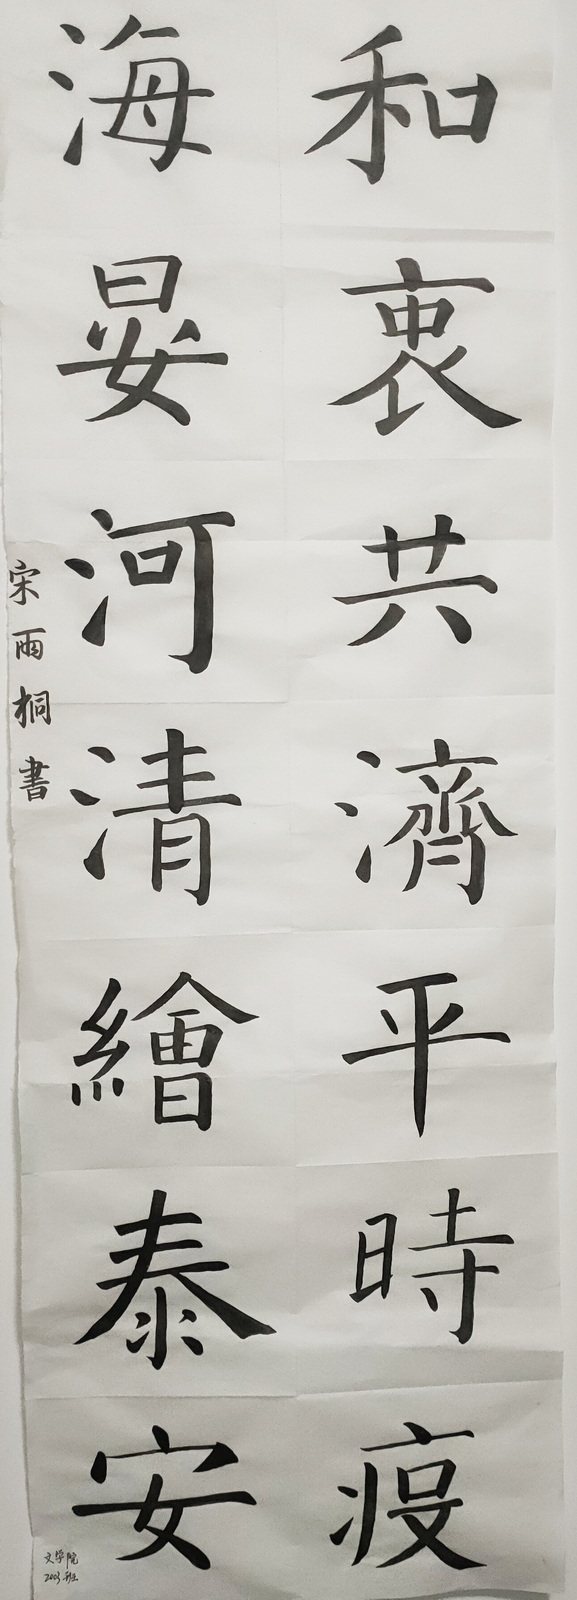 和衷共濟平時疫
海晏河清繪泰安
宋雨桐書
文学院
2003班